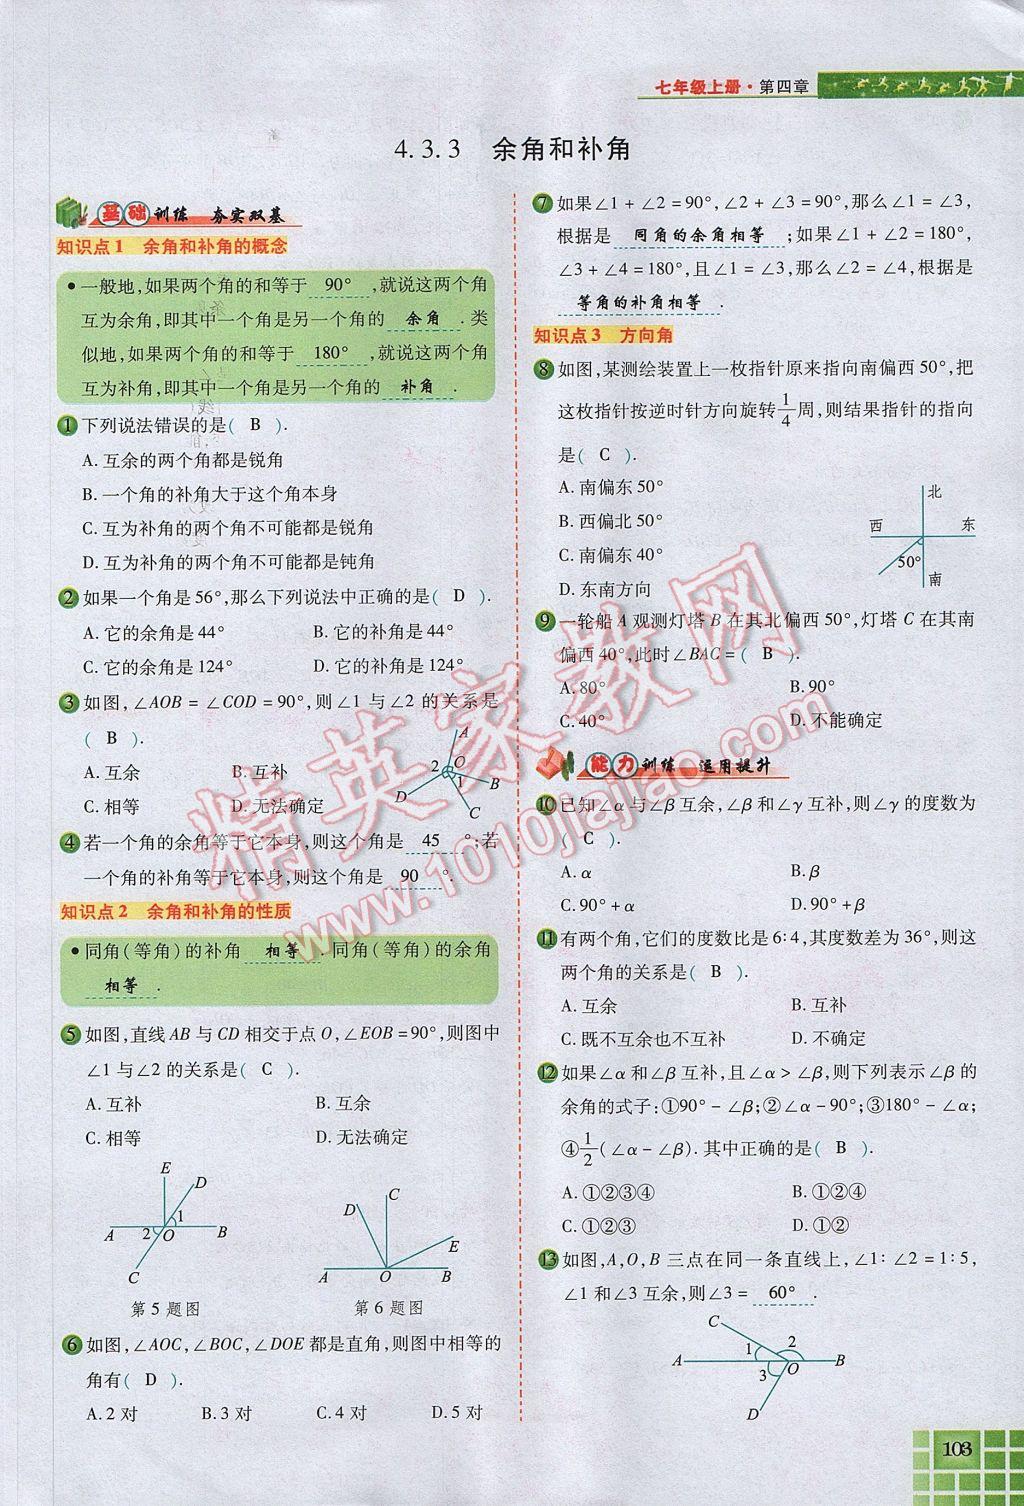 七年级上册·第四章
4.3.3 余角和补角
基础训练 夯实双基
知识点1 余角和补角的概念
●一般地,如果两个角的和等于 90° ,就说这两个角
互为余角,即其中一个角是另一个角的 余角 .类
似地,如果两个角的和等于 180° ,就说这两个角
互为补角,即其中一个角是另一个角的 补角 .
1 下列说法错误的是( B ).
A.互余的两个角都是锐角
B.一个角的补角大于这个角本身
C.互为补角的两个角不可能都是锐角
D.互为补角的两个角不可能都是钝角
2 如果一个角是56°,那么下列说法中正确的是( D ).
A.它的余角是44° B.它的补角是44°
C.它的余角是124° D.它的补角是124°
3 如图,∠AOB=∠COD=90°,则∠1与∠2的关系是
( B ).
A.互余 B.互补
C.相等 D.无法确定
A
2 O
1 B
D
C
4 若一个角的余角等于它本身,则这个角是 45 °;若
一个角的补角等于它本身,则这个角是 90 °.
知识点2 余角和补角的性质
●同角(等角)的补角 相等 .同角(等角)的余角
相等 .
5 如图,直线AB与CD相交于点O,∠EOB=90°,则图中
∠1与∠2的关系是( C ).
A.互补 B.互余
C.相等 D.无法确定
E
D
1
A 2 O B
C
第5题图
C
D
E
A O B
第6题图
6 如图,∠AOC,∠BOC,∠DOE都是直角,则图中相等的
角有( D ).
A.2对 B.3对 C.4对 D.5对
7 如果∠1+∠2=90°,∠2+∠3=90°,那么∠1=∠3,
根据是 同角的余角相等 ;如果∠1+∠2=180°,
∠3+∠4=180°,且∠1=∠3,那么∠2=∠4,根据是
等角的补角相等 .
知识点3 方向角
8 如图,某测绘装置上一枚指针原来指向南偏西50°,把
这枚指针按逆时针方向旋转1/4周,则结果指针的指向
是( C ).
A.南偏东50°
B.西偏北50°
C.南偏东40°
D.东南方向
北
西 东
50°
南
9 一轮船A观测灯塔B在其北偏西50°,灯塔C在其南
偏西40°,此时∠BAC=( B ).
A.80° B.90°
C.40° D.不能确定
能力训练 运用提升
10 已知∠α与∠β互余,∠β和∠γ互补,则∠γ的度数为
( C ).
A.α B.β
C.90°+α D.90°+β
11 有两个角,它们的度数比是6:4,其度数差为36°,则这
两个角的关系是( B ).
A.互余 B.互补
C.既不互余也不互补 D.不确定
12 如果∠α和∠β互补,且∠α>∠β,则下列表示∠β的
余角的式子:①90°-∠β;②∠α-90°;③180°-∠α;
④1/2(∠α-∠β).其中正确的是( B ).
A.①②③④ B.①②④
C.①②③ D.①②
13 如图,A,O,B三点在同一条直线上,∠1:∠2=1:5,
∠1和∠3互余,则∠3= 60° .
C
1 2
A O B
3
D
103
精英家教网
www.1010jiajiao.com